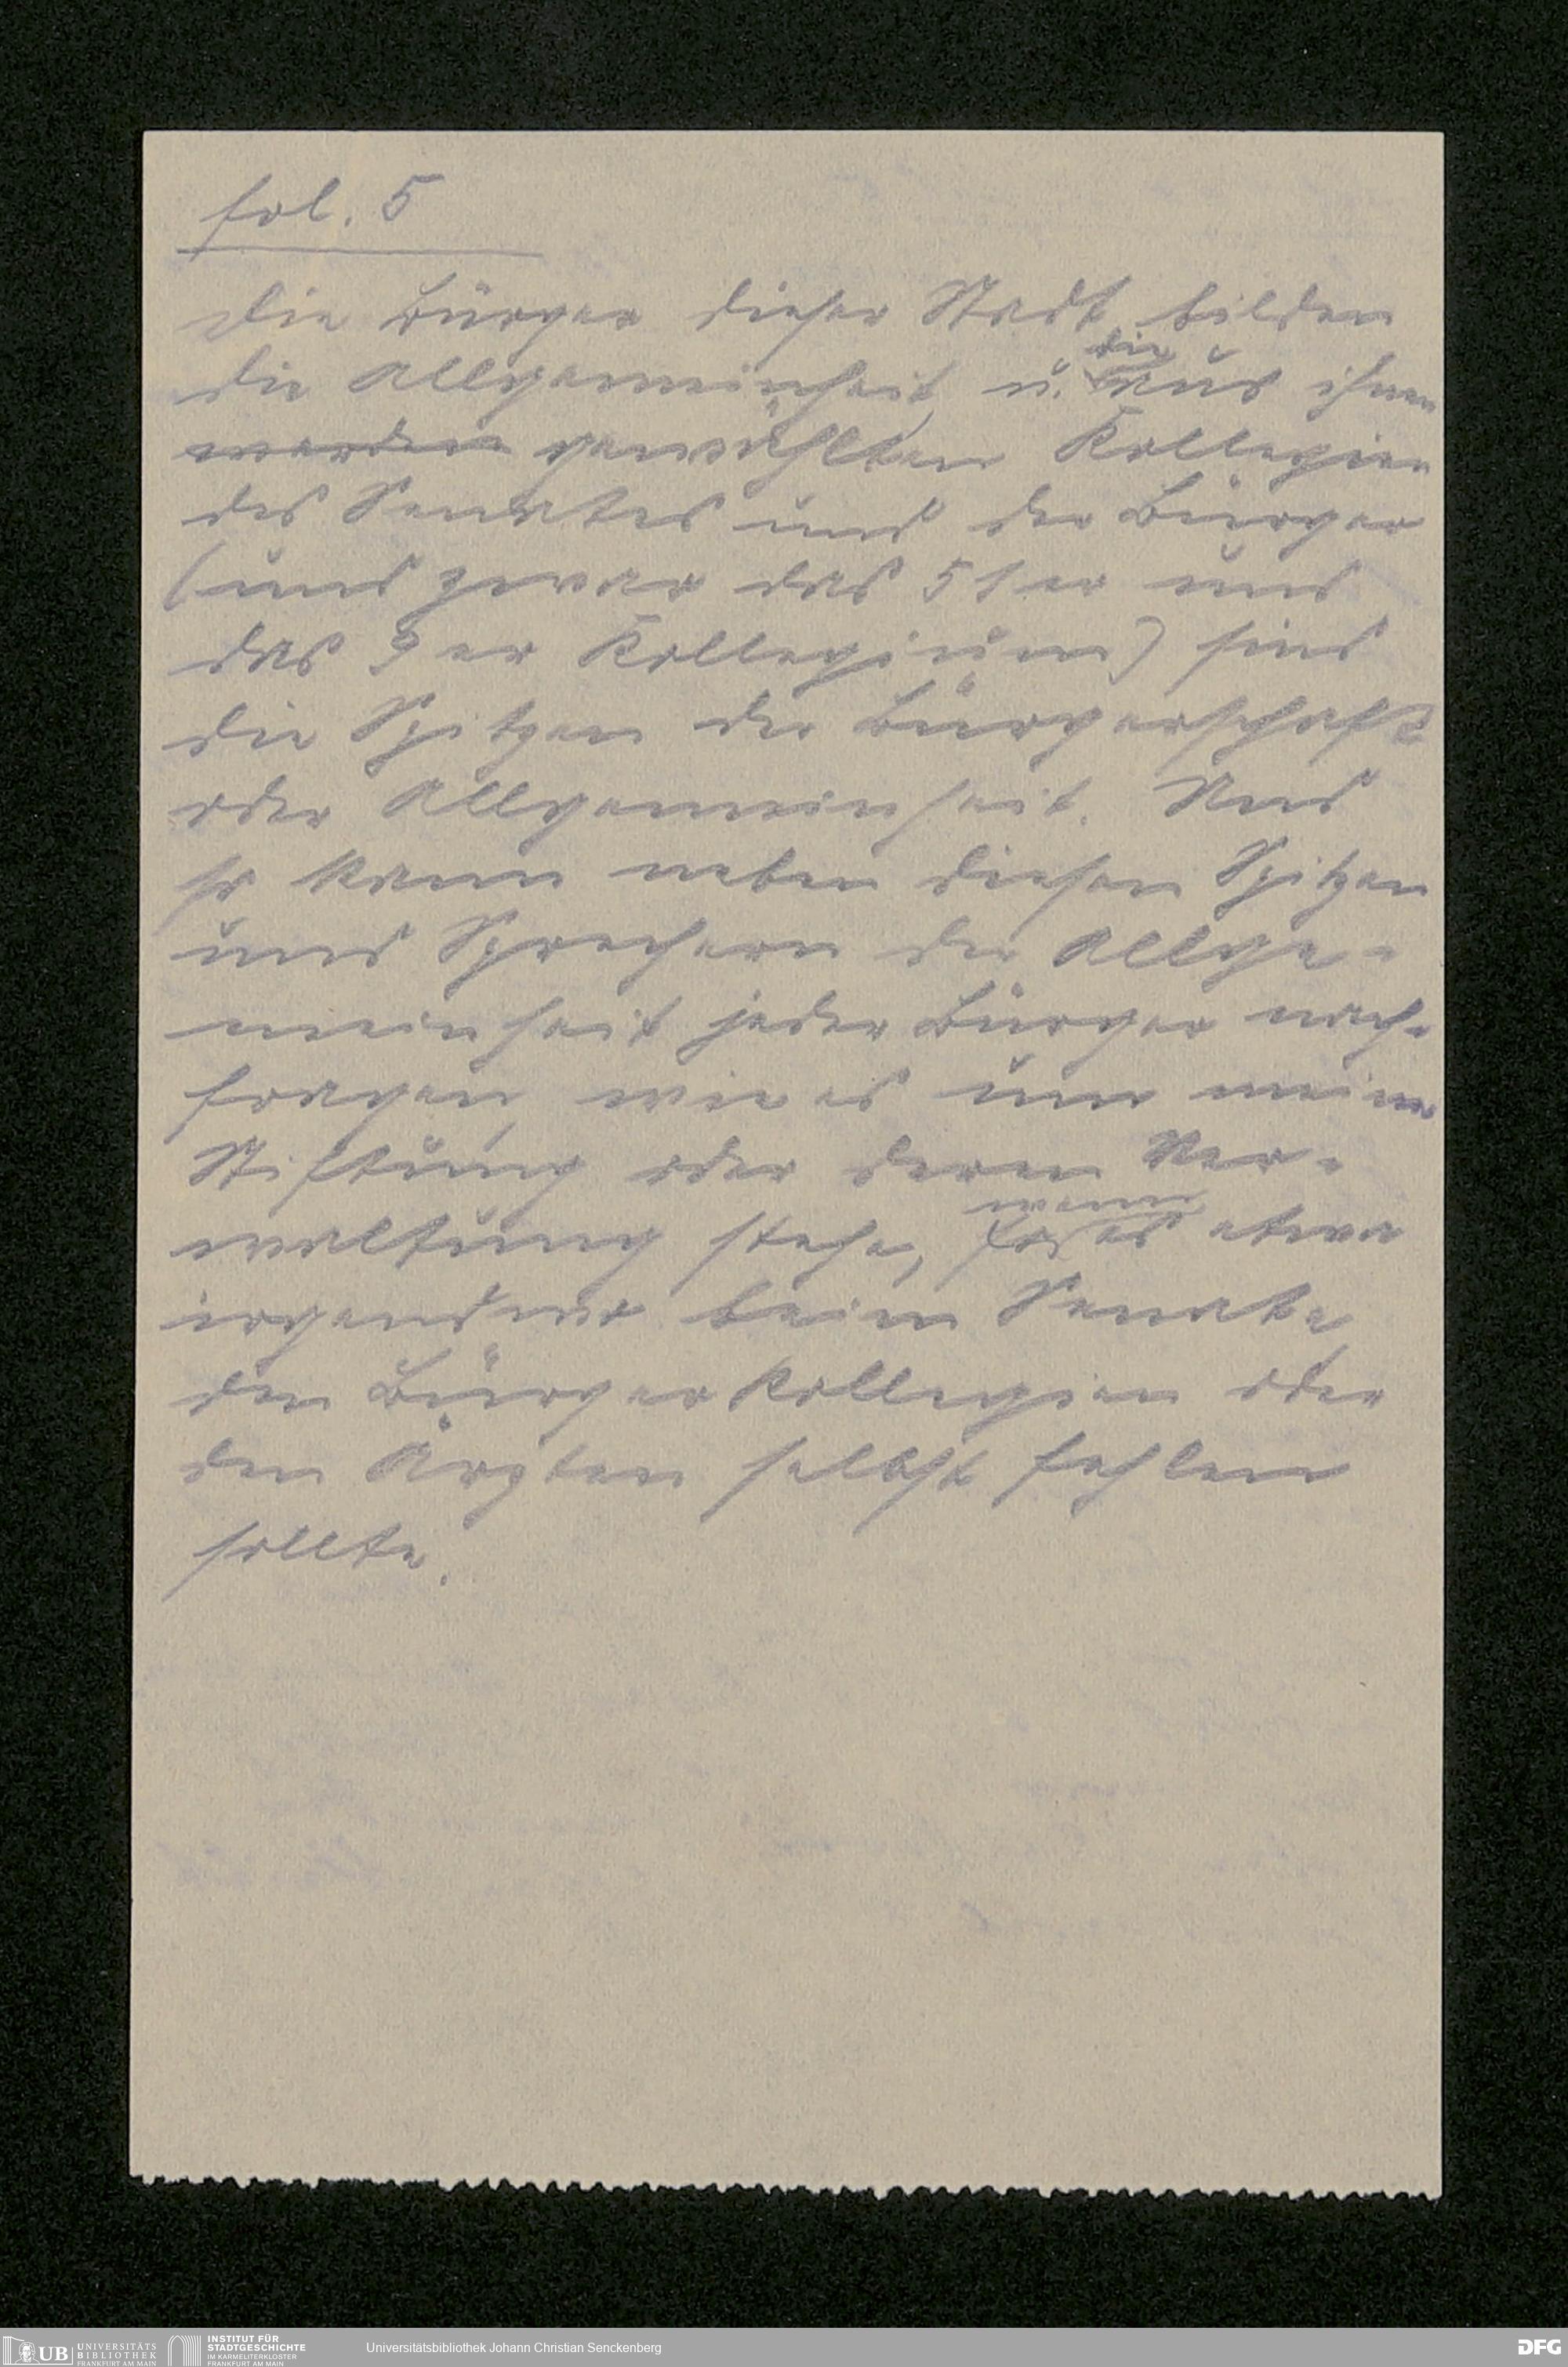 fol. 5
Die Bürger dieser Stadt bilden
die Allgemeinheit, u. die aus ihnen
werden gewählten Kollegien
des Senates und der Bürger
(und zwar das 51er und
das 9er Kollegium) sind
die Spitzen der Bürgerschaft
oder Allgemeinheit. Und
so kann neben diesen Spitzen
und Sprechern der Allge-
meinheit jeder Bürger nach-
fragen, wie es um meine
Stiftung oder deren Ver-
waltung stehe, wenn es etwa
irgendwo beim Senate,
den Bürgerkollegien oder
den Ärzten selbst fehlen
sollte.
UB UNIVERSITÄTS BIBLIOTHEK FRANKFURT AM MAIN
INSTITUT FÜR STADTGESCHICHTE IM KARMELITERKLOSTER FRANKFURT AM MAIN
Universitätsbibliothek Johann Christian Senckenberg
DFG